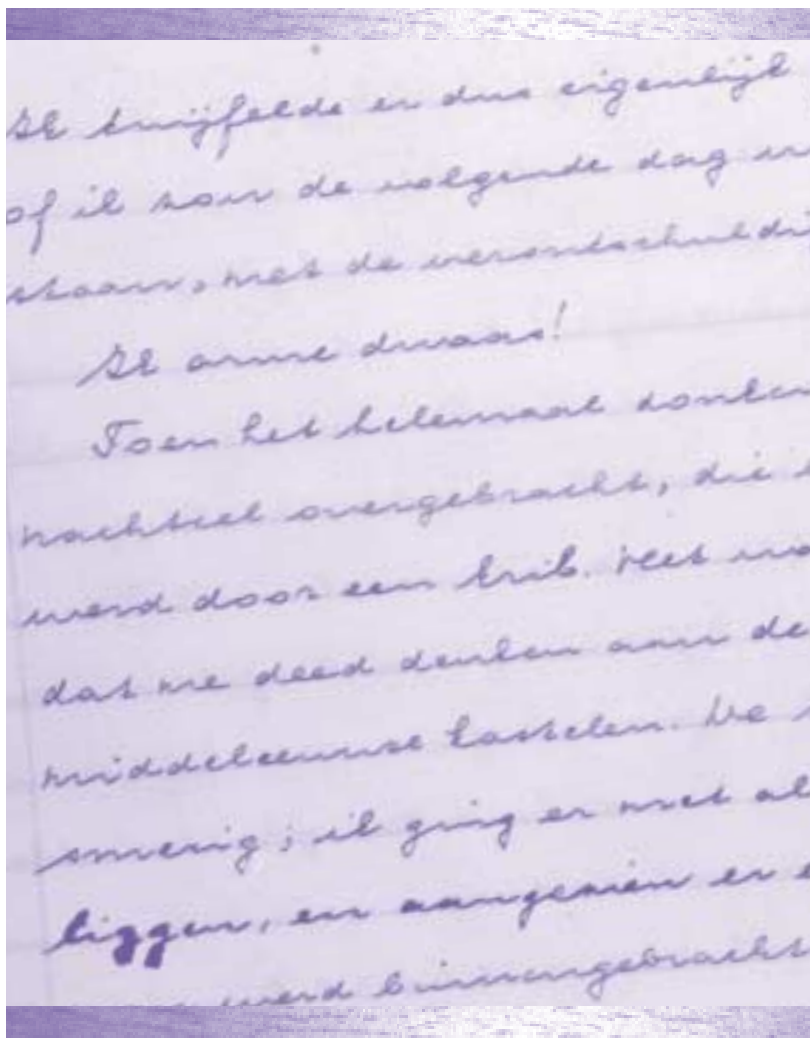 Ik twijfelde er dus eigenlijk
of ik zou de volgende dag
staan, met de verontschuldi
Ik arme dwaas!
Toen het helemaal donker
nachtcel overgebracht, die
werd door een krib. Het
dat me deed denken aan de
middeleeuwse kastelen. De
smerig; ik ging er met al
liggen, en aangezien er
werd binnengebracht